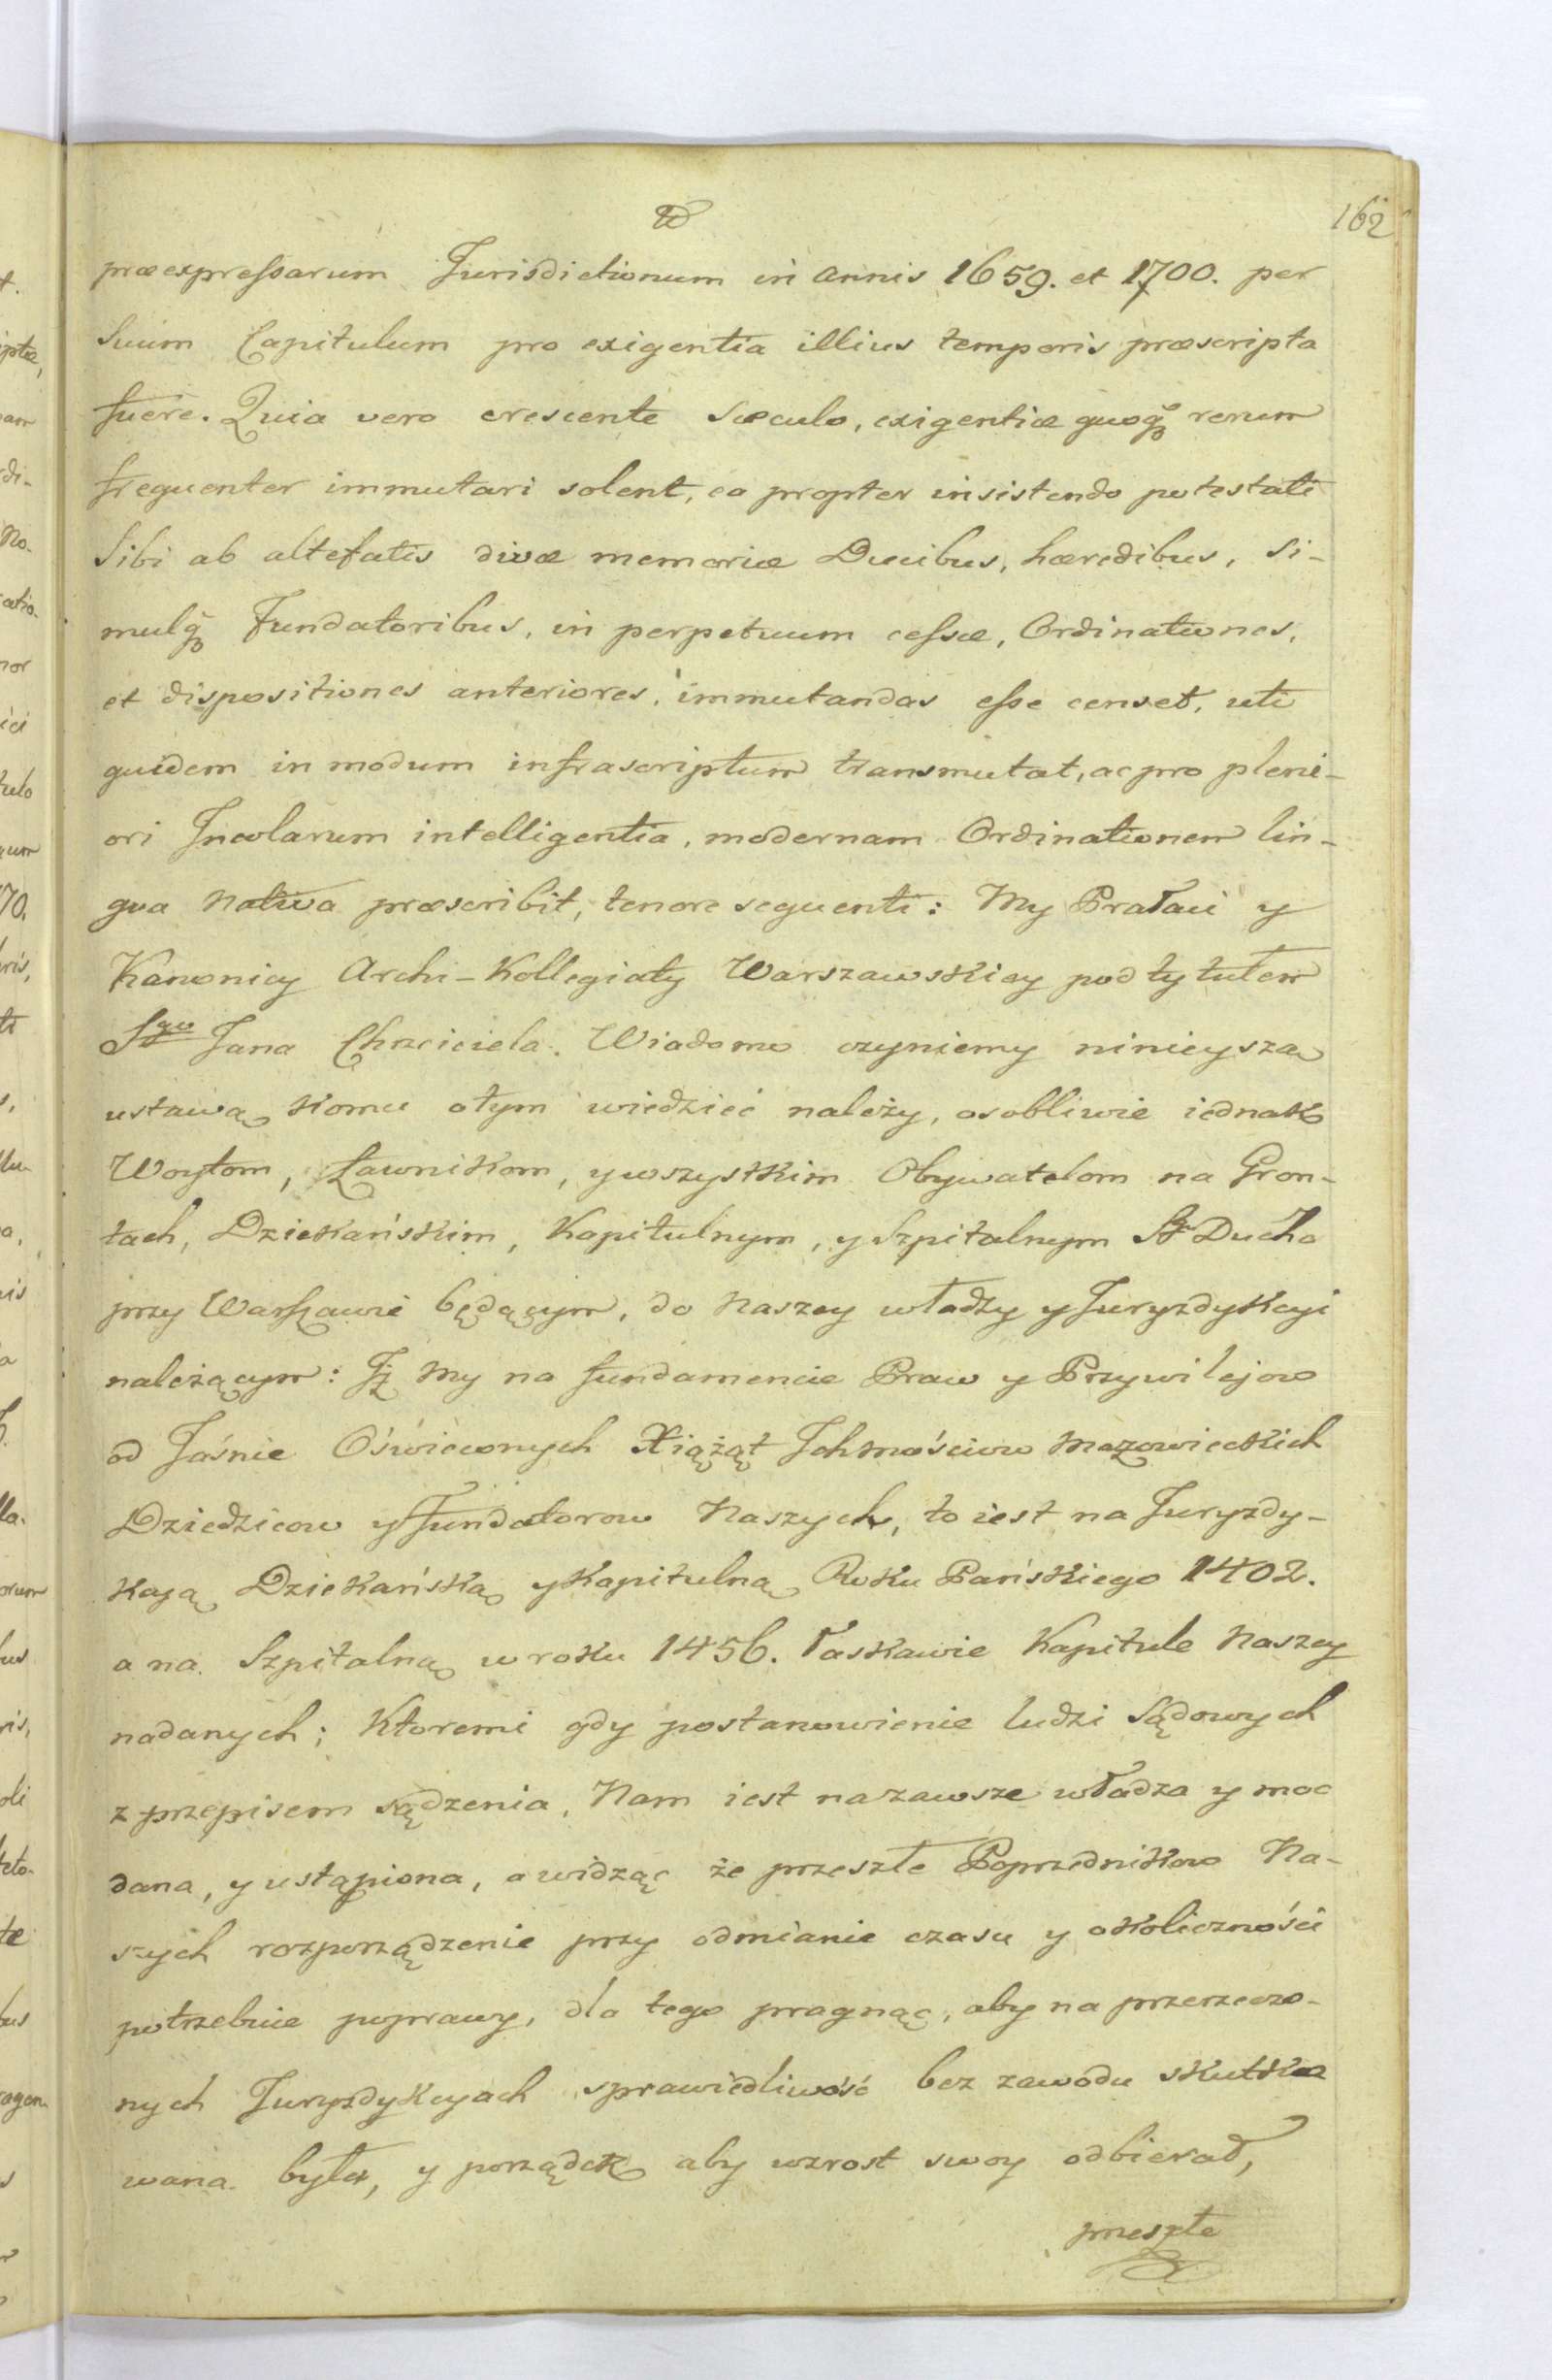 162
præexpressarum Jurisdictionum in annis 1659. et 1700. per
Suum Capitulum pro exigentia illius temporis præscripta
fuere. Quia vero crescente sæculo, exigentiæ quoq̃ rerum
frequenter immutari solent, eo propter insistendo potestati
Sibi ab altefatis divæ memoriæ Ducibus, hæredibus, si-
mulq̃ Fundatoribus, in perpetuum cessæ, Ordinationes,
et dispositiones anteriores, immutandas esse censet, uti
quidem in modum infrascriptum transmutat, ac pro pleni-
ori Incolarum intelligentia, modernam Ordinationem lin-
gua Nativa præscribit, tenore sequenti: My Prałaci y
Kanonicy Archi-Kollegiaty Warszawskiey pod tytułem
Sgo Jana Chrzciciela. Wiadomo czyniemy ninieyszą
ustawą komu otym wiedzieć należy, osobliwie iednak
Woytom, Ławnikom, y wszystkim Obywatelom na Gron-
tach, Dziekańskim, Kapitulnym, y Szpitalnym Sgo Ducha
przy Warszawie będącym, do Naszey władzy y Juryzdykcyi
należącym: Iż My na fundamencie Praw y Przywilejow
od Jaśnie Oświeconych Xiążąt Ichmościow Mazowieckich
Dziedzicow y Fundatorow Naszych, to iest na Juryzdy-
kcyą Dziekańską y Kapitulną Roku Pańskiego 1402.
a na Szpitalną w roku 1456. łaskawie Kapitule Naszey
nadanych; Ktoremi gdy postanowienie ludzi Sądowych
z przepisem sądzenia, Nam iest na zawsze władza y moc
dana, y ustąpiona, a widząc że przeszłe Poprzednikow Na-
szych rozporządzenie przy odmianie czasu y okoliczności
potrzebuie poprawy, dla tego pragnąc, aby na przerzeczo-
nych Juryzdykcyach sprawiedliwość bez zawodu skutko
wana była, y porządek aby wzrost swoy odbierał,
przeszłe